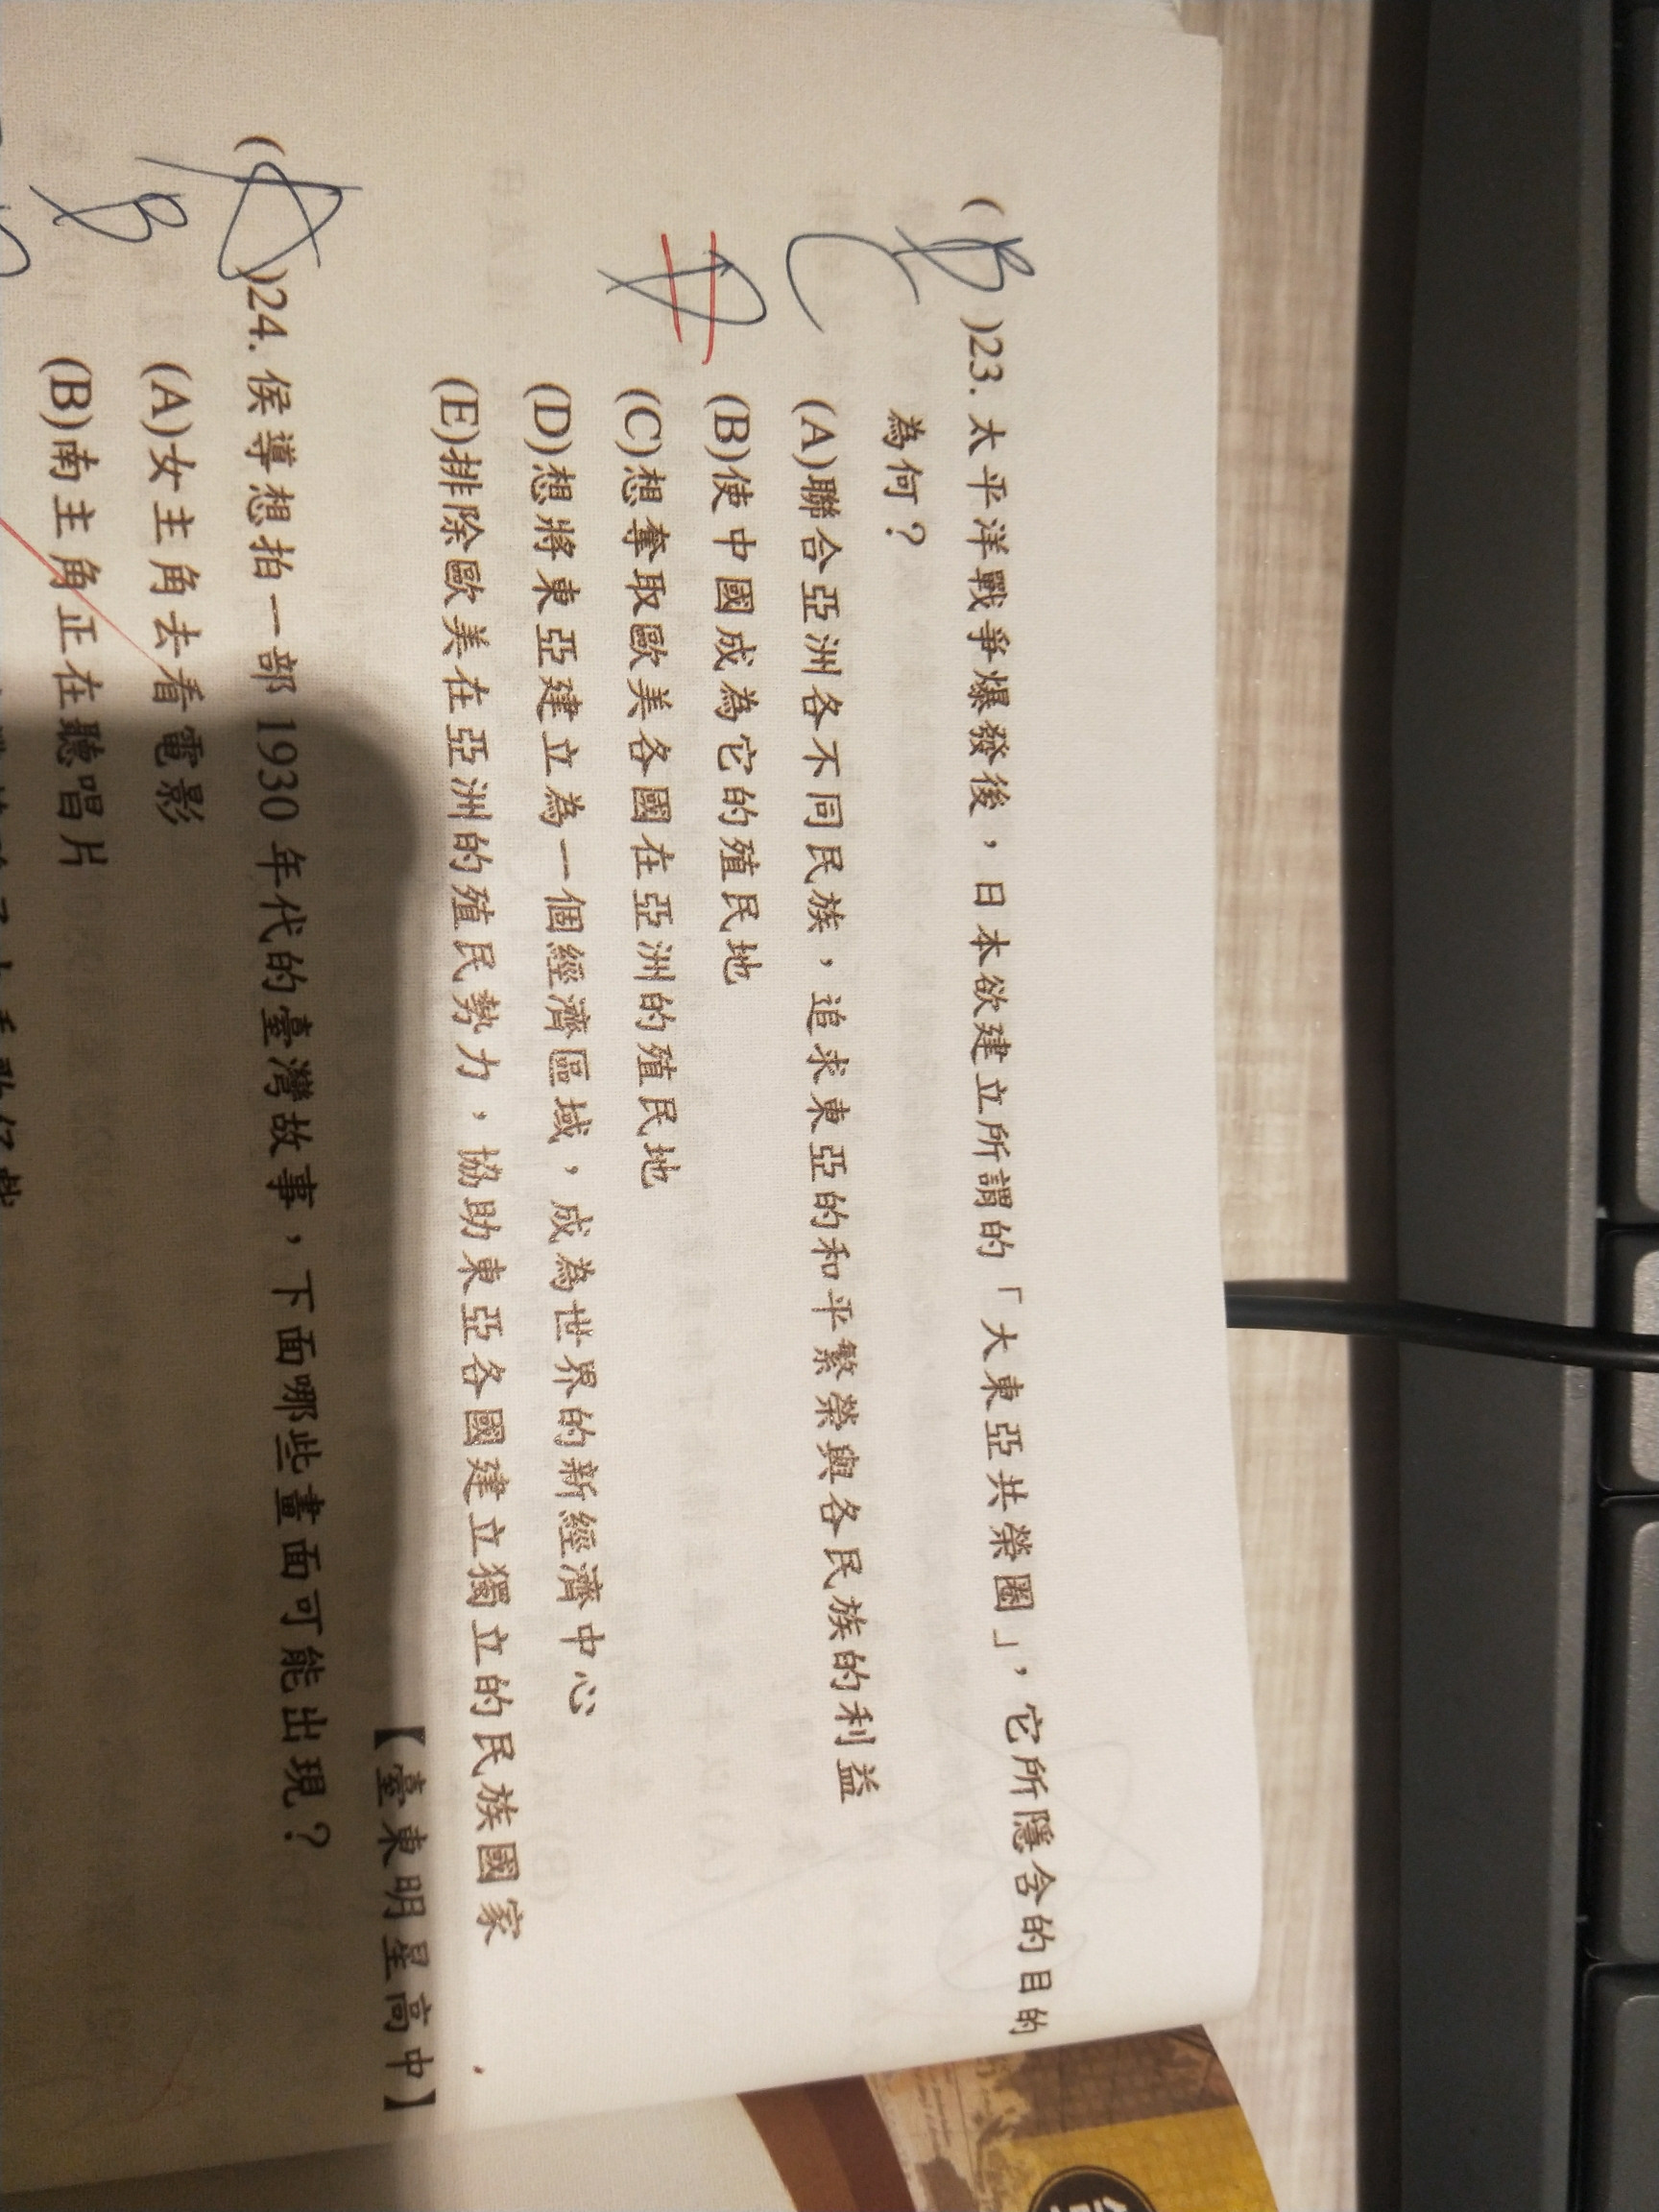 (B)23. 太平洋戰爭爆發後，日本欲建立所謂的「大東亞共榮圈」，它所隱含的目的
C 為何？
(A)聯合亞洲各不同民族，追求東亞的和平繁榮與各民族的利益
(B)使中國成為它的殖民地
(C)想奪取歐美各國在亞洲的殖民地
(D)想將東亞建立為一個經濟區域，成為世界的新經濟中心
(E)排除歐美在亞洲的殖民勢力，協助東亞各國建立獨立的民族國家
【臺東明星高中】
(A)24. 侯導想拍一部 1930 年代的臺灣故事，下面哪些畫面可能出現？
B (A)女主角去看電影
(B)南主角正在聽唱片